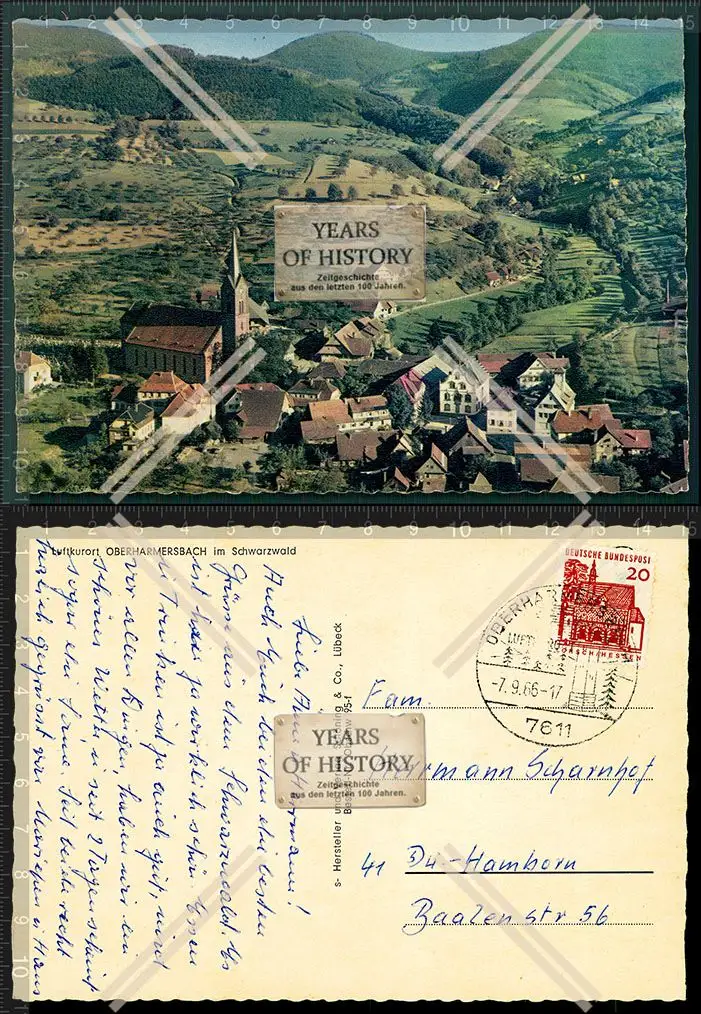 YEARS
OF HISTORY
Zeitgeschichte
aus den letzten 100 Jahren.
Luftkurort OBERHARMERSBACH im Schwarzwald
Auch Euch beiden die besten
Grüsse aus dem Schwarzwald. Es
ist hier ja wirklich schön. Essen
u Trinken ist ja auch gut, und
vor allen Dingen, haben wir ein
schönes Wetter u seit 2 Tagen scheint
sogar die Sonne. Seit beide recht
herzlich gegrüsst von u Hans
-s- Hersteller Schöning & Co., Lübeck
DEUTSCHE BUNDESPOST
20
LORSCH/HESSEN
OBERHARMERSBACH
-7.9.66-17
7611
YEARS
OF HISTORY
Zeitgeschichte
aus den letzten 100 Jahren.
Fam.
Herrmann Scharnhof
41 Du-Hamborn
Baalen str 56